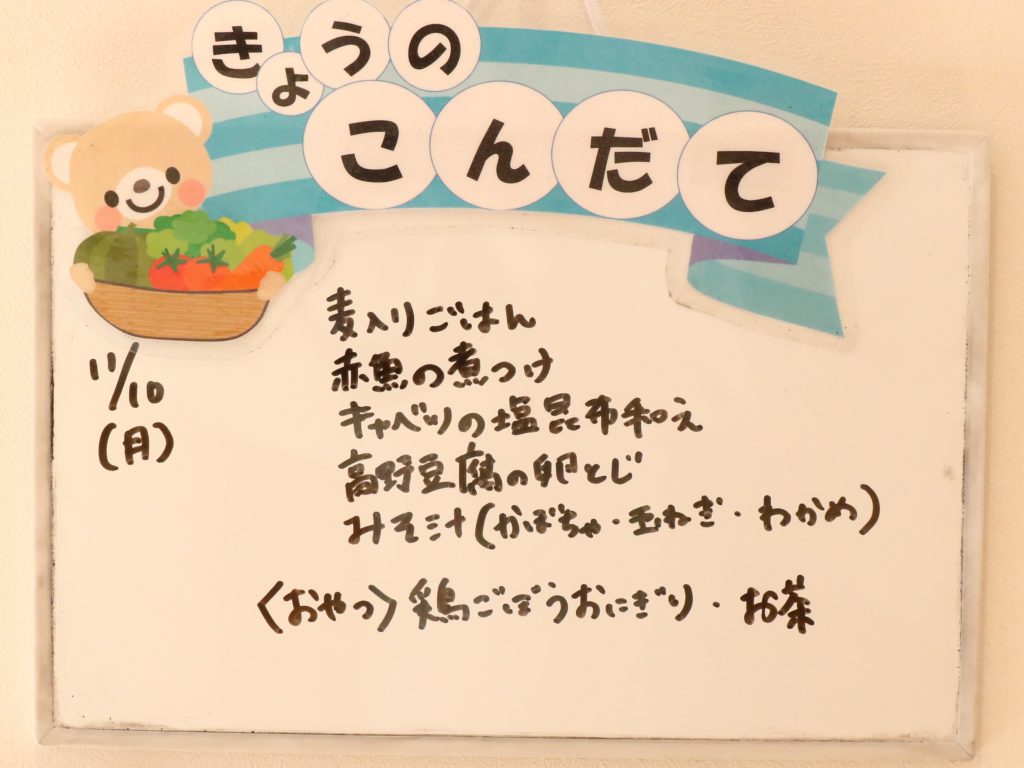 きょうの
こんだて
11/10
(月)
麦入りごはん
赤魚の煮つけ
キャベツの塩昆布和え
高野豆腐の卵とじ
みそ汁(かぼちゃ・玉ねぎ・わかめ)
〈おやつ〉鶏ごぼうおにぎり・お茶